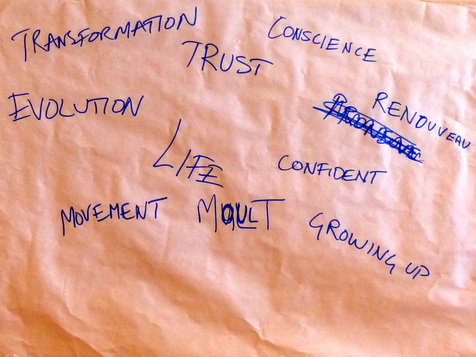 TRANSFORMATION
CONSCIENCE
TRUST
EVOLUTION
RENOUVEAU
LIFE
CONFIDENT
MOVEMENT
MOULT
GROWING UP